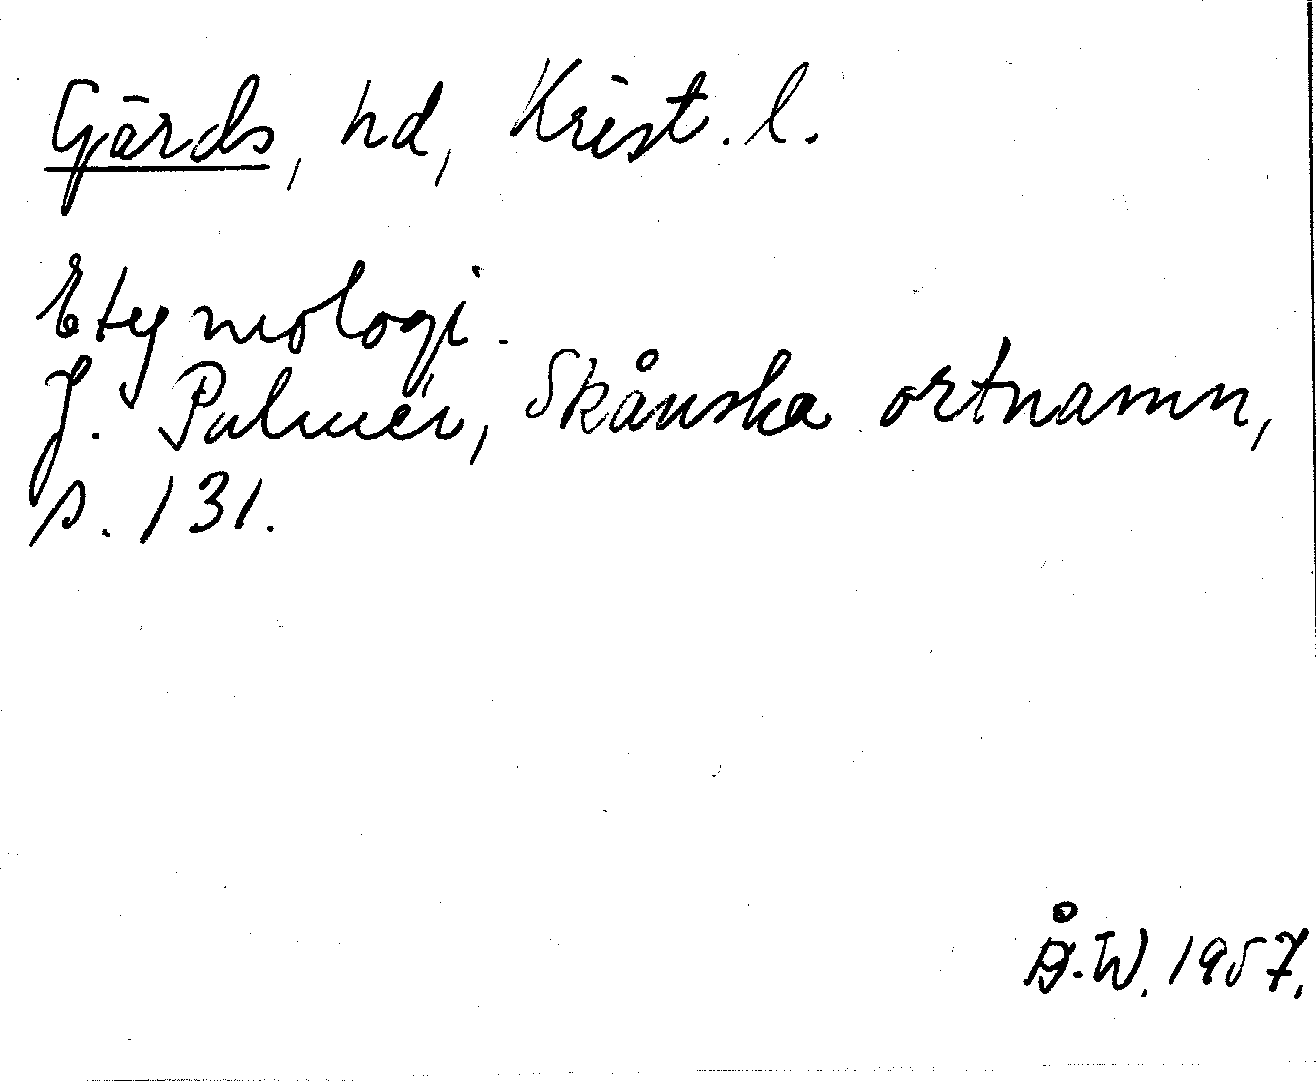 Gärds, hd, Krist. l.
Etymologi.
J. Palmér, Skånska ortnamn,
s. 131.
Å.W. 1957.